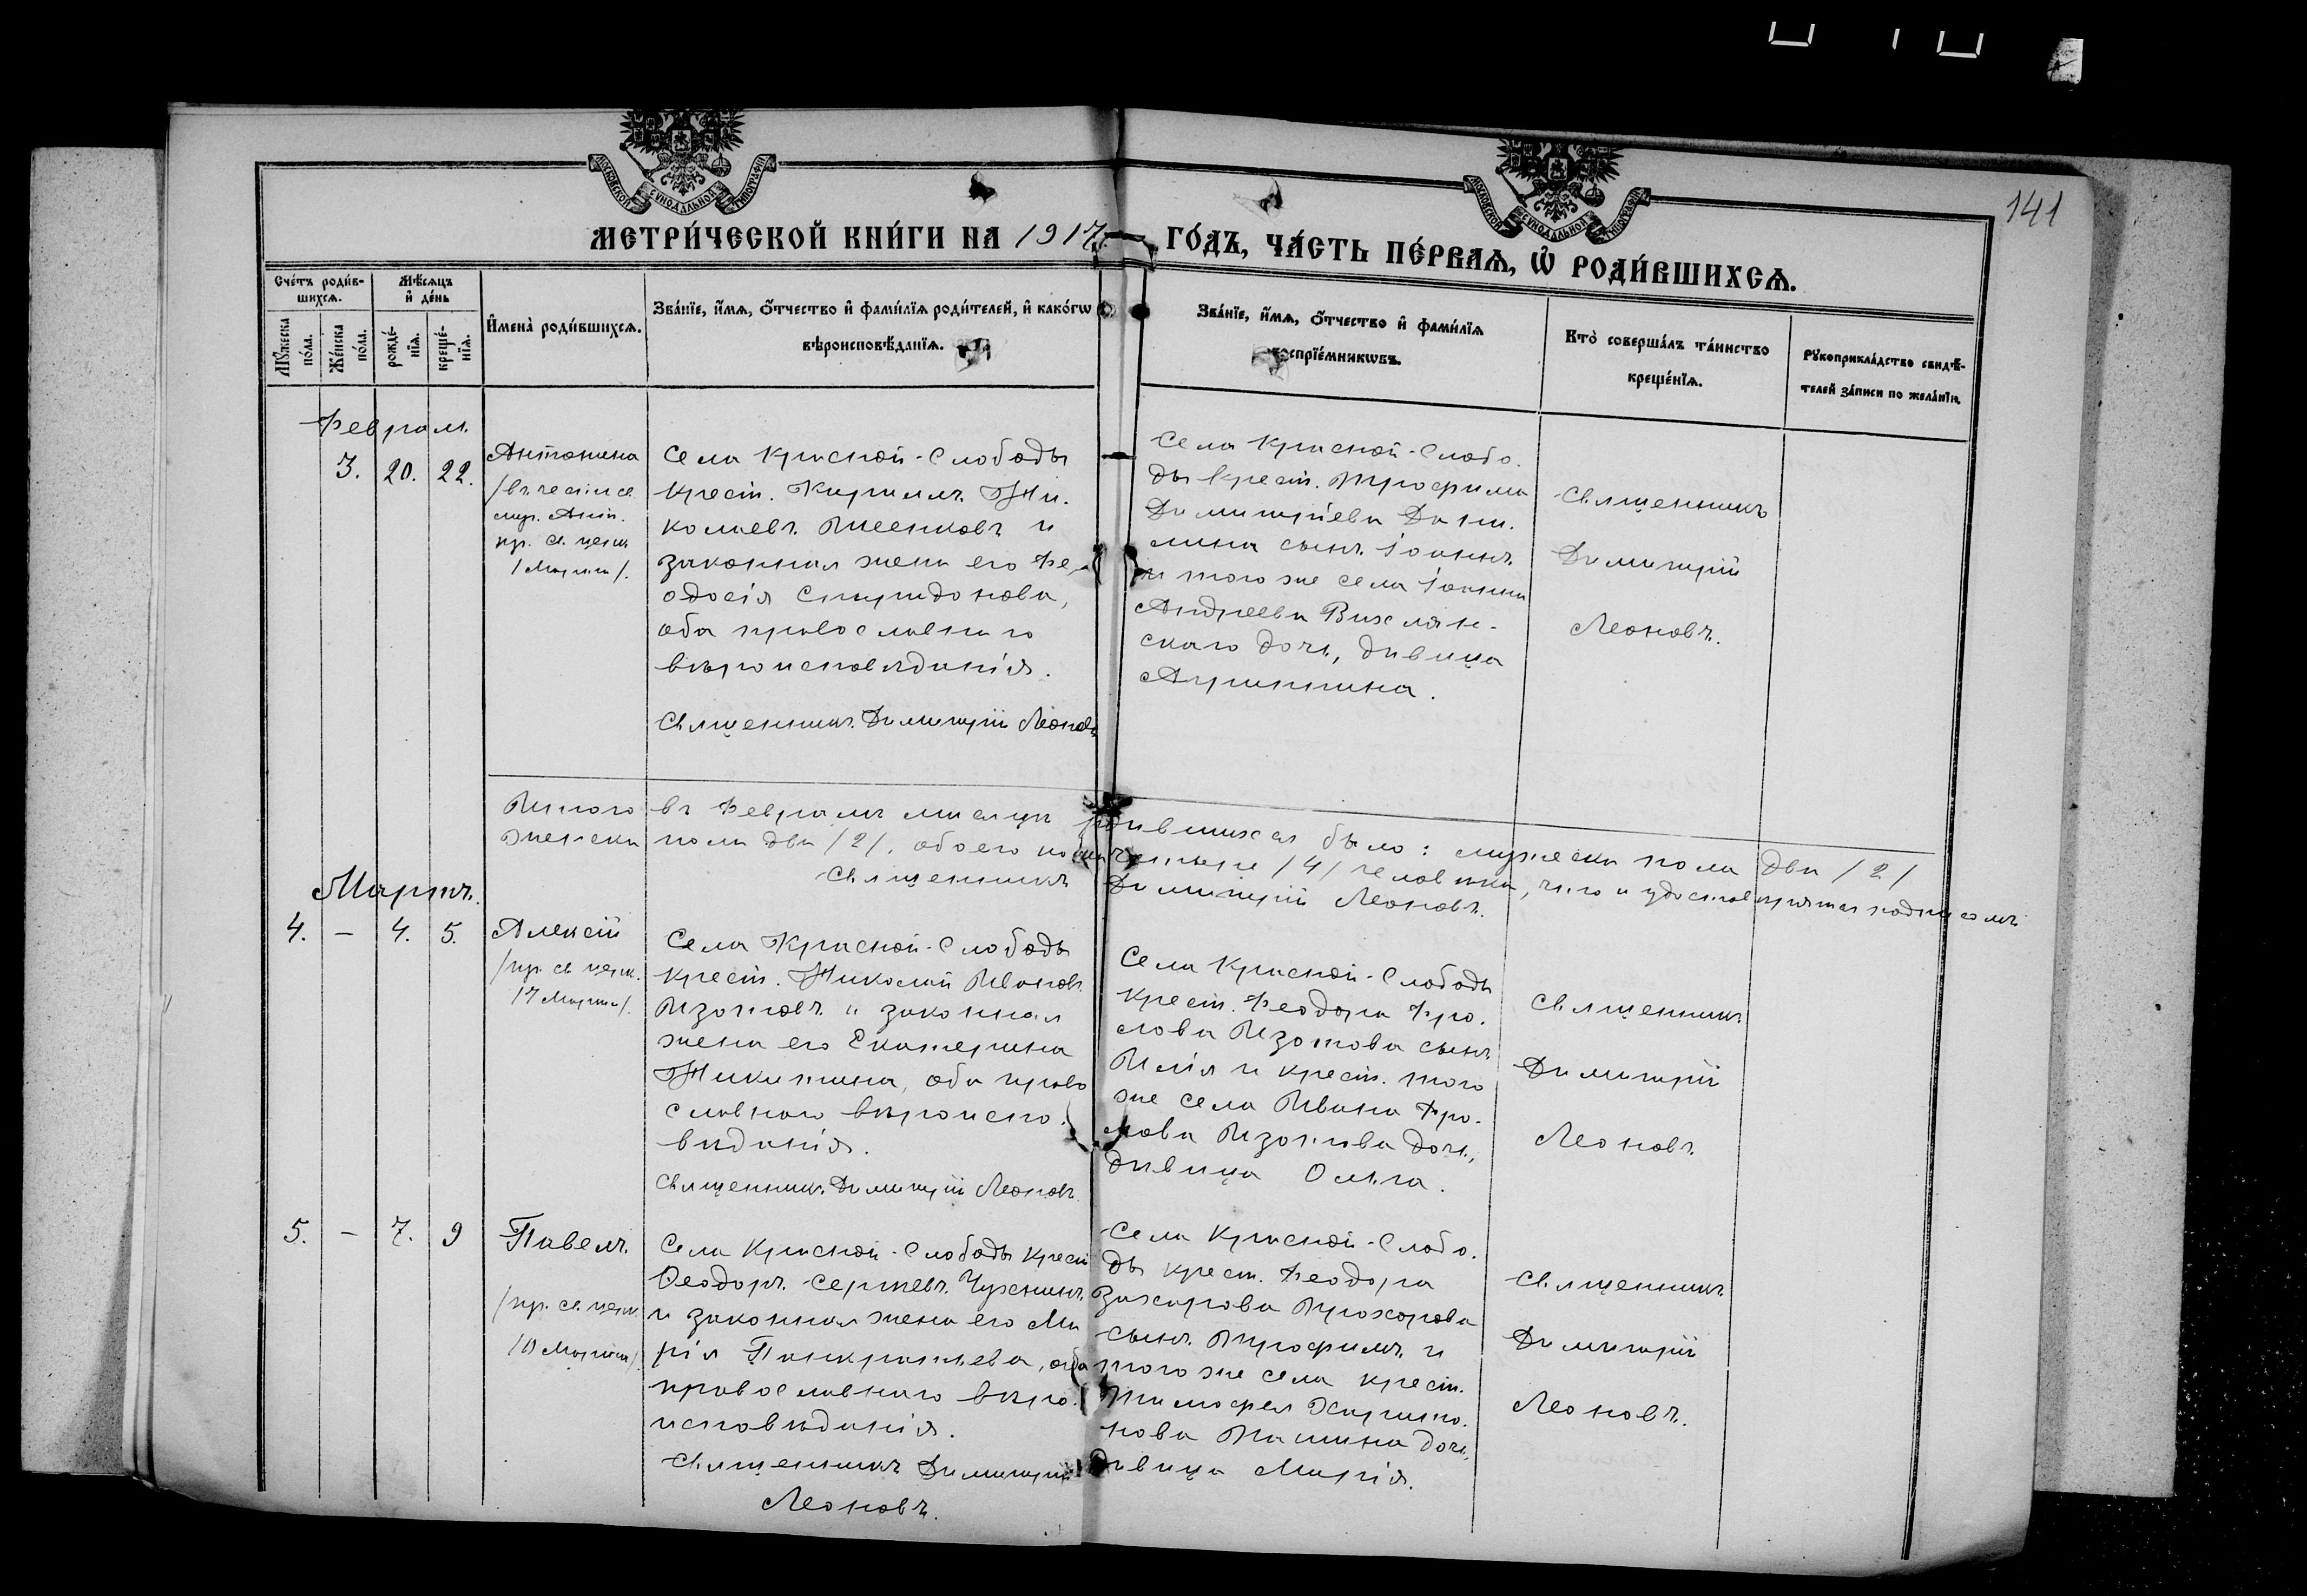 141
МОСКОВСКОЙ СѴНОДАЛЬНОЙ ТИПОГРАФІИ
МОСКОВСКОЙ СѴНОДАЛЬНОЙ ТИПОГРАФІИ
МЕТРИ́ЧЕСКОЙ КНИ́ГИ НА 1917 ГО́ДЪ, ЧА́СТЬ ПЕ́РВАѦ, Ѡ҆ РОДИ́ВШИХСѦ.
Сче́тъ роди́в-
шихсѧ.
Мѣ́сѧцъ
и҆ де́нь
Мꙋ́жеска
по́ла.
Же́нска
по́ла.
рожде́-
нїѧ.
креще́-
нїѧ.
И҆мена̀ роди́вшихсѧ.
Зва́нїе, и҆́мѧ, ѻ҆́тчество и҆ фами́лїѧ роди́телей, и҆ како́гѡ
вѣроисповѣ́данїѧ.
Зва́нїе, и҆́мѧ, ѻ҆́тчество и҆ фами́лїѧ
воспрїе́мникѡвъ.
Кто̀ соверша́лъ та́инство
креще́нїѧ.
Рꙋкоприкла́дство свидѣ́-
телей за́писи по жела́нїю.
Февраль
3. 20. 22.
Антонина
/въ честь св.
муч. Ант.
пр. св. церк.
1 Марта/.
Села Красной-Слободы
крест. Кириллъ Ни-
колаевъ и
законная жена его Фе-
одосія Спиридонова,
оба православнаго
вѣроисповѣданія.
Священникъ Димитрій Леоновъ
Села Красной-Слобо-
ды крест. Трофима
Димитріева Дани-
лина сынъ Іоаннъ
и того же села Іоанна
Андреева
дочь, дѣвица
Агриппина.
Священникъ
Димитрій
Леоновъ.
Итого въ Февралѣ мѣсяцѣ родившихся было: мужеска пола два /2/
женска пола два /2/, обоего пола четыре /4/ человѣка, что и удостовѣряемъ подписомъ
Священникъ Димитрій Леоновъ.
Мартъ.
4. – 4. 5.
Алексій
/пр. св. церк.
17 Марта/.
Села Красной-Слободы
крест. Николай Ивановъ
Изотовъ и законная
жена его Екатерина
Никитина, оба право
славнаго вѣроиспо-
вѣданія.
Священникъ Димитрій Леоновъ.
Села Красной-Слободы
крест. Феодора Фро-
лова Изотова сынъ
Илія и крест. того
же села Ивана Фро-
лова Изотова дочь,
дѣвица Ольга.
Священникъ
Димитрій
Леоновъ.
5. – 7. 9
Павелъ.
/пр. св. церк.
10 Марта/
Села Красной-Слободы крест
Ѳеодоръ Сергѣевъ
и законная жена его Ма
рія Панкратьева, оба
православнаго вѣро-
исповѣданія.
Священникъ Димитрій
Леоновъ.
Села Красной-Слобо-
ды крест. Феодора
Захарова Прохорова
сынъ Трофимъ и
того же села крест.
Тимофея Харито-
нова дочь,
дѣвица Марія.
Священникъ
Димитрій
Леоновъ.